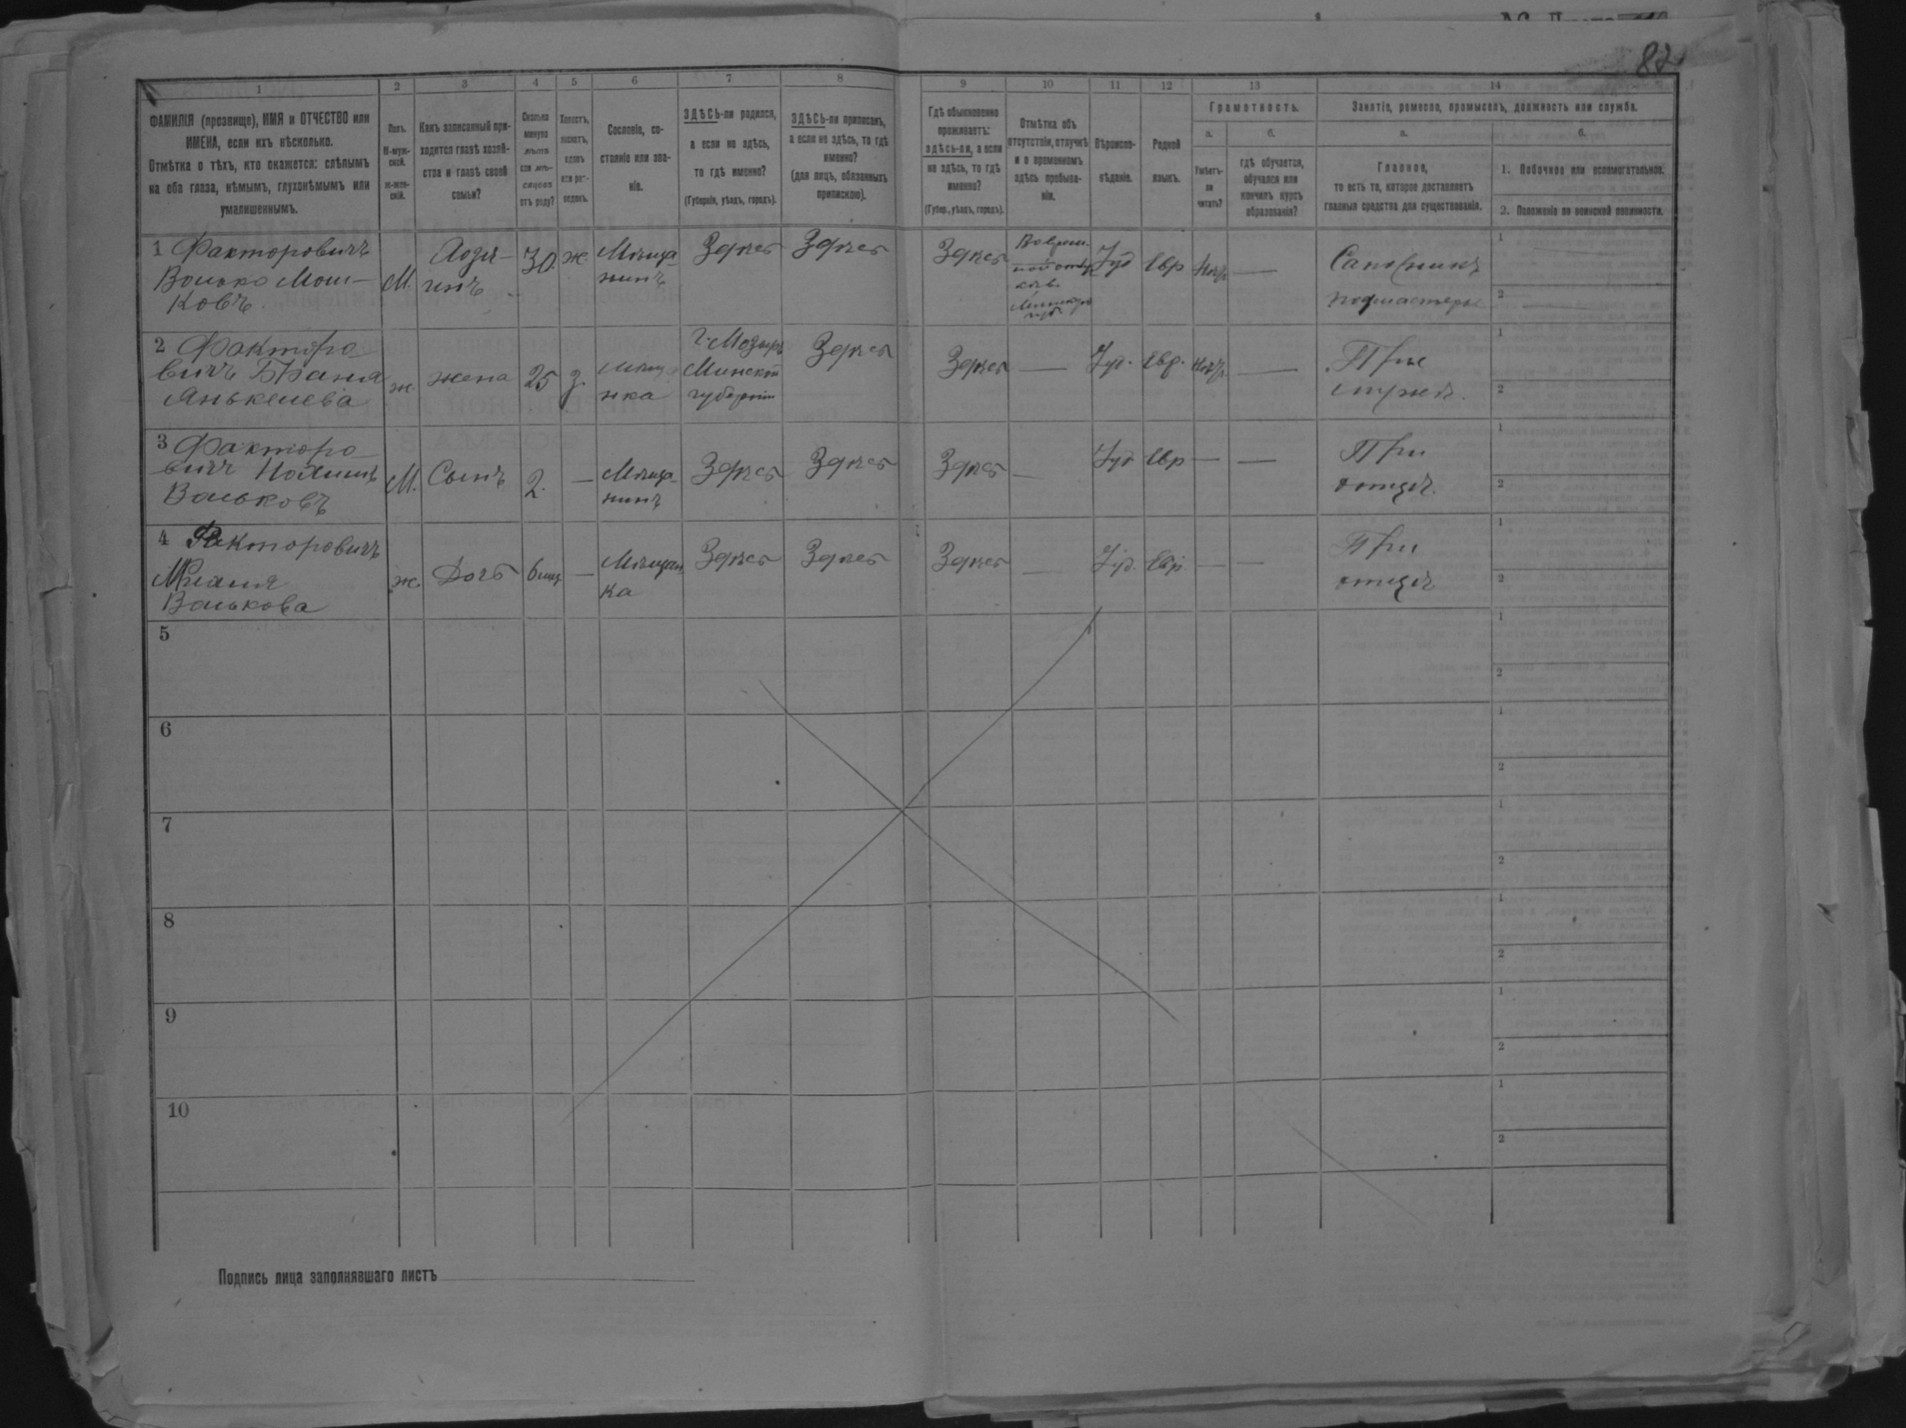 82
1
2
3
4
5
6
7
8
9
10
11
12
13
14
ФАМИЛІЯ (прозвище), ИМЯ и ОТЧЕСТВО или
ИМЕНА, если ихъ нѣсколько.
Отмѣтка о тѣхъ, кто окажется: слѣпымъ
на оба глаза, нѣмымъ, глухонѣмымъ или
умалишеннымъ.
Полъ.
М-муж-
ской.
Ж-жен-
скій.
Какъ записанный при-
ходится главѣ хозяй-
ства и главѣ своей
семьи?
Сколько
минуло
лѣтъ
или мѣ-
сяцевъ
отъ роду?
Холостъ,
женатъ,
вдовъ
или раз-
веденъ.
Сословіе, со-
стояніе или зва-
ніе.
ЗДѢСЬ-ли родился,
а если не здѣсь,
то гдѣ именно?
(Губернія, уѣздъ, городъ).
ЗДѢСЬ-ли приписанъ,
а если не здѣсь, то гдѣ
именно?
(для лицъ, обязанныхъ
припискою).
Гдѣ обыкновенно
проживаетъ:
здѣсь-ли, а если
не здѣсь, то гдѣ
именно?
(Губер., уѣздъ, городъ).
Отмѣтка объ
отсутствіи, отлучкѣ
и о временномъ
здѣсь пребыва-
ніи.
Вѣроиспо-
вѣданіе.
Родной
языкъ.
Грамотность.
а.
б.
Умѣетъ-
ли
читать?
гдѣ обучается,
обучался или
кончилъ курсъ
образованія?
Занятіе, ремесло, промыселъ, должность или служба.
а.
б.
Главное,
то есть то, которое доставляетъ
главныя средства для существованія.
1. Побочное или вспомогательное.
2. Положеніе по воинской повинности.
1 Факторовичъ
Волько Мош-
ковъ
М.
Хозя-
инъ
30.
ж.
Мѣща-
нинъ
Здѣсь
Здѣсь
Здѣсь
Іуд
Евр
Сапожникъ
подмастерье
1
2
2 Факторо
вичъ
Янькелева
ж
жена
25
з.
нка
г. Мозырь
Минской
губерніи
Здѣсь
Здѣсь
—
Іуд.
Евр.
При
мужѣ.
1
2
3 Факторо
вичъ
Вольковъ
М.
Сынъ
2.
—
Мѣща-
нинъ
Здѣсь
Здѣсь
Здѣсь
—
Іуд
Евр
—
—
При
отцѣ.
1
2
4 Факторовичъ
Волькова
ж.
Дочь
6 мц
—
Мѣщан
ка
Здѣсь
Здѣсь
Здѣсь
—
Іуд.
Евр.
—
—
При
отцѣ
1
2
5
1
2
6
1
2
7
1
2
8
1
2
9
1
2
10
1
2
Подпись лица заполнявшаго листъ